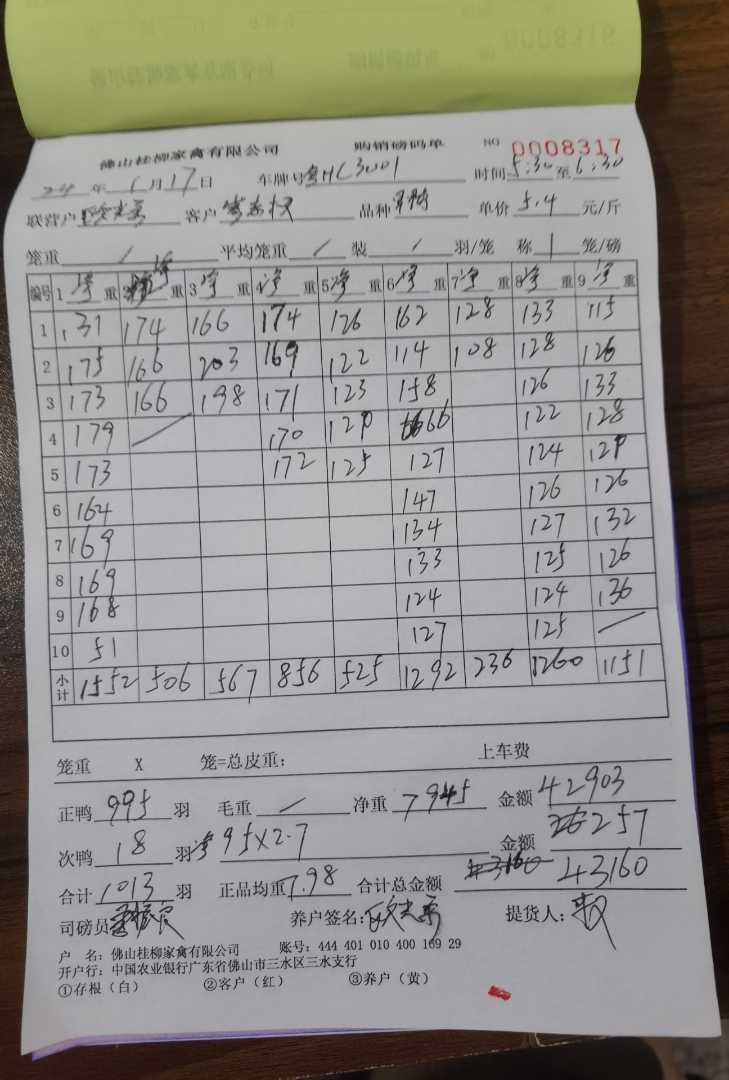 佛山桂柳家禽有限公司 购销磅码单 NO 0008317
24 年 6 月 17 日 车牌号 HC3001 时间 5:30 至 6:30
联营户 客户 品种 单价 5.4 元/斤
笼重 / 平均笼重 / 装 / 羽/笼 称 1 笼/磅
编号 1 净 重 2 净 重 3 净 重 净 重 5 净 重 6 净 重 7 净 重 8 净 重 9 净 重
1 131 174 166 174 126 162 128 133 115
2 175 166 203 169 122 114 108 128 126
3 173 166 198 171 123 158 126 133
4 179 / 170 129 66 122 128
5 173 172 125 127 124 129
6 164 147 126 126
7 169 134 127 132
8 169 133 125 126
9 168 124 124 136
10 51 127 125 /
小计 1552 506 567 856 525 1292 236 1260 1151
笼重 X 笼=总皮重: 上车费
正鸭 995 羽 毛重 / 净重 7945 金额 42903
次鸭 18 羽 净 95×2.7 金额 257
合计 1013 羽 正品均重 7.98 合计总金额 43160
司磅员 养户签名: 提货人:
户 名: 佛山桂柳家禽有限公司 账号: 444 401 010 400 169 29
开户行: 中国农业银行广东省佛山市三水区三水支行
①存根(白) ②客户(红) ③养户(黄)